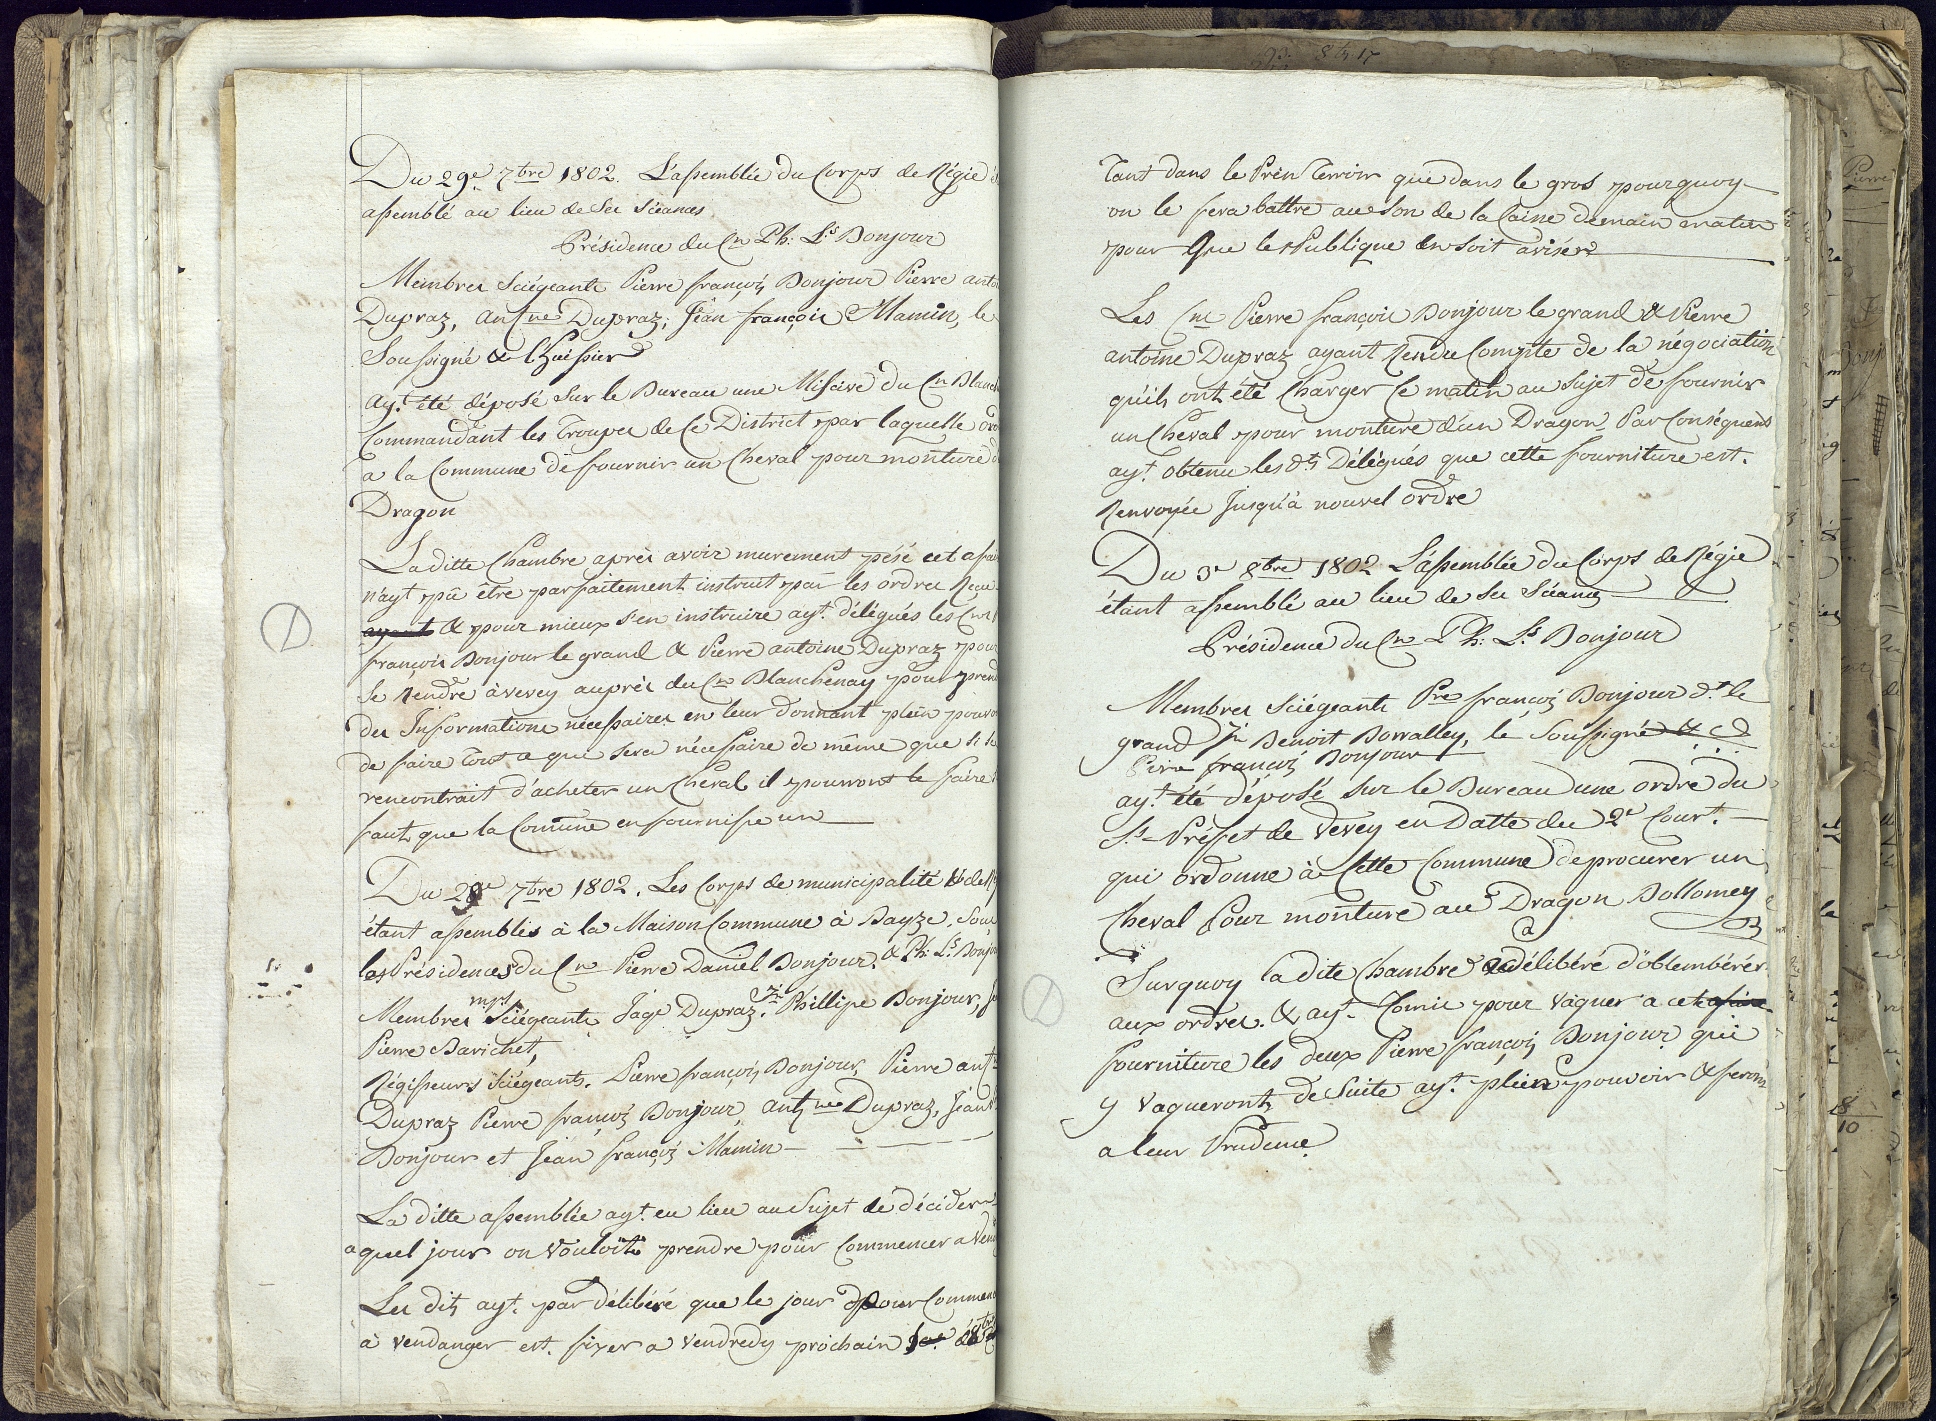 Du 29e. 7bre 1802. L'assemblée du Corps de Régie
assemblé au lieu de ses séances
Présidence du Cn Ph: Ls Bonjour
Membres sciégeants Pierre françois Bonjour Pierre
Dupraz, antne Dupraz, Jean françois Mamin, le
Soussigné & l'huissier
ayt. été déposé sur le Bureau une Missive du Cn
Commandant les Troupes de ce District par laquelle
a la Commune de fournir un Cheval pour monture
Dragon
Laditte Chambre après avoir murement pesé cet
n'ayt pû être parfaitement instruit par les ordres
ayant & pour mieux s'en instruire ayt. délégués les
françois Bonjour le grand & Pierre antoine Dupraz pour
se rendre à vevey auprès du Cn Blanchenay pour
des Informations nécessaires en leur donnant plein
de faire tout a que sera nécessaire de même que si
rencontrait d'acheter un Cheval il pourront le faire
faut que la Comune en fournisse un
Du 29e 7bre 1802. Les Corps de municipalité & de
étant assemblés à la Maison Commune à Bayze, sous
les Présidences du Cn Pierre Daniel Bonjour. & Ph: Ls
Membres mpx sciégeants, Jaqe Dupraz, Phillipe Bonjour,
Pierre Barichet,
Régisseurs sciégeants. Pierre françois Bonjour, Pierre
Dupraz Pierre françois Bonjour, antne Dupraz, Jean
Bonjour et Jean françois Mamin
La ditte assemblée ayt. eu lieu au sujet de décider
a quel jour on vouloit prendre pour Commencer a
Les dits ayt. par délibéré que le jour pour
à vendanger est. fixer a vendredy prochain
Tant dans le Prin Terroir que dans le gros pourquoy
on le fera battre au son de la Caisse demain matin
pour que le Publique en soit aviser
Les Cns Pierre françois Bonjour le grand & Pierre
antoine Dupraz ayant rendu Compte de la négociation
qu'ils ont été Charger ce matin au sujet de fournir
un Cheval pour monture d'un Dragon. Par Conséquent
ayt. obtenu les dts Délégués que cette fourniture est.
Renvoyée jusqu'à nouvel ordre
Du 3e 8bre 1802 L'assemblée du Corps de Régie
étant assemblé au lieu de ses séances
Présidence du Cn Ph: Ls Bonjour
Membres sciégeants Pre françois Bonjour dt. le
grand Jn Benoit Borralley, le soussigné &
françois Bonjour
ayt. été déposé sur le Bureau une ordre du
Ss-Préffet de Vevey en datte du 2e Court.
qui ordonne à Cette Commune de procurer un
Cheval pour monture au Dragon Dollomey
Surquoy la dite Chambre a délibéré d'obtembérér
aux ordres. & ayt. Comis pour vaquer a cet
fourniture les deux Pierre françois Bonjour qui
y vaqueront de suite ayt. plein pouvoir &
a leur Prudence.
8
10